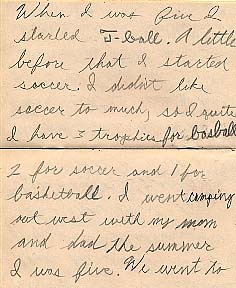 When I was five I
started T-ball. A little
before that I started
soccer. I didn't like
soccer to much, so I quite
I have 3 trophies for basball
2 for soccer and 1 for
basketball. I went camping
out west with my mom
and dad the summer
I was five. We went to